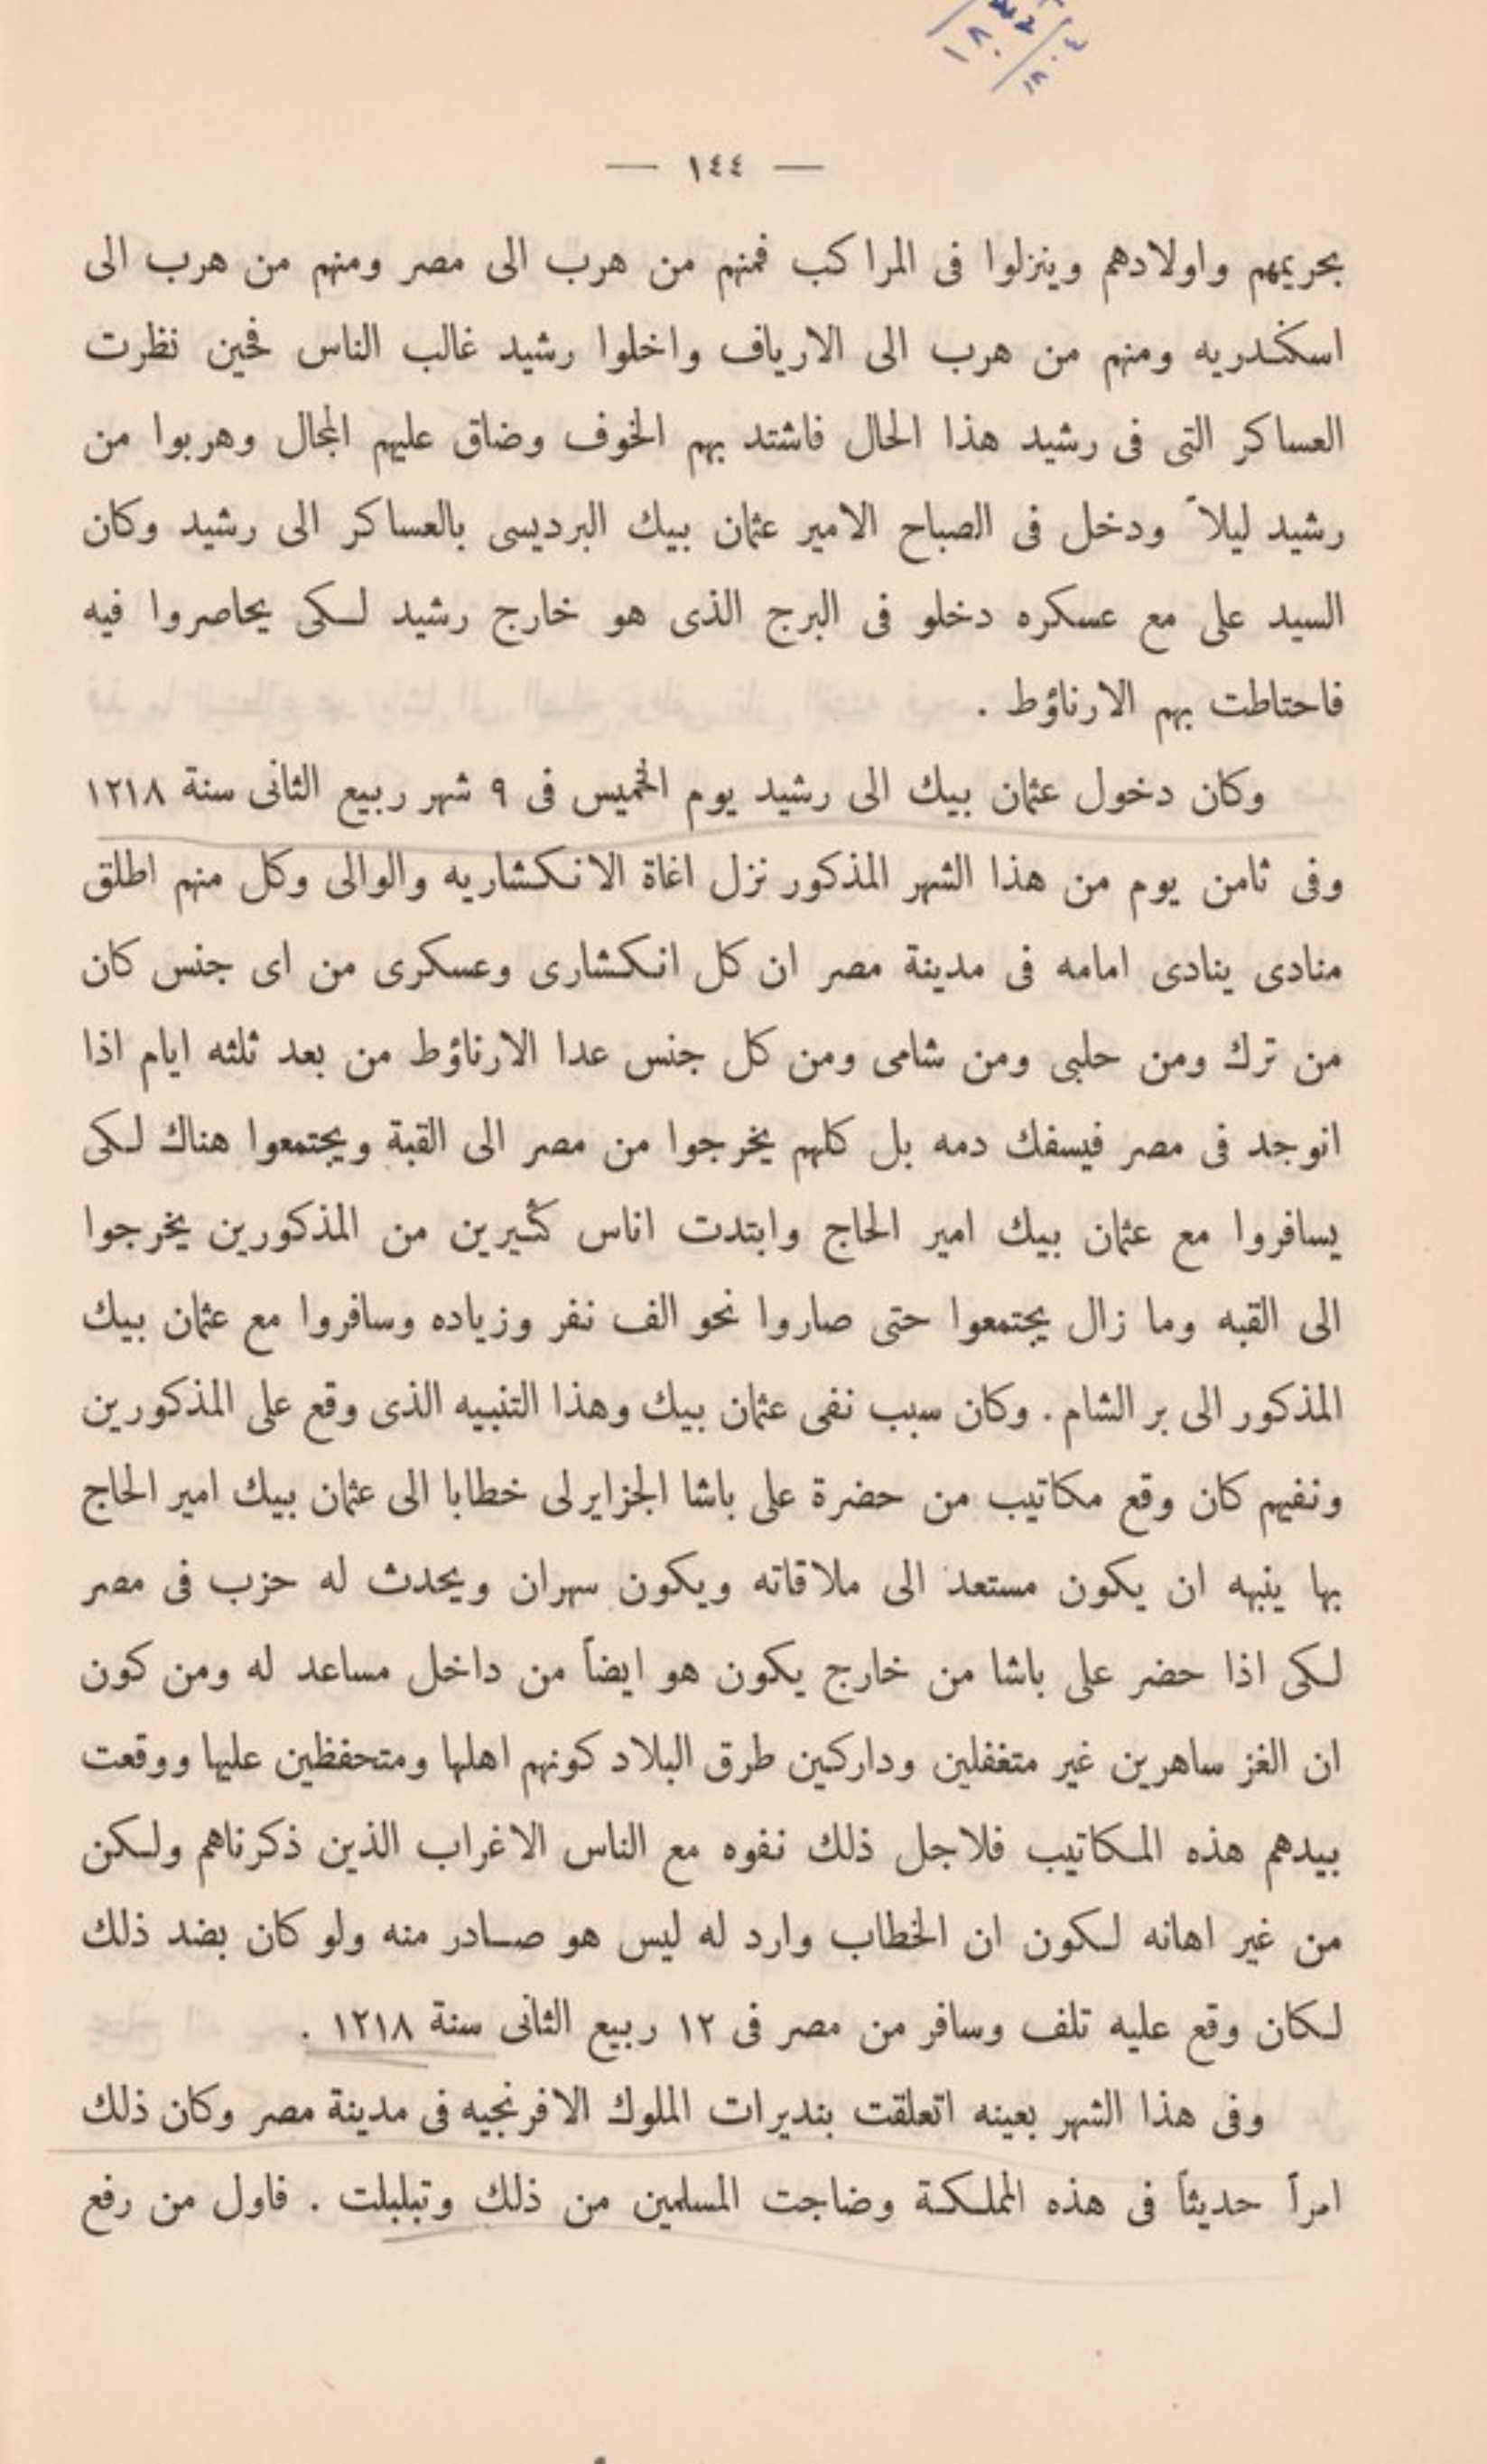 — ١٤٤ —
بحريمهم واولادهم وينزلوا فى المراكب فمنهم من هرب الى مصر ومنهم من هرب الى
اسكندريه ومنهم من هرب الى الارياف واخلوا رشيد غالب الناس فحين نظرت
العساكر التى فى رشيد هذا الحال فاشتد بهم الخوف وضاق عليهم المجال وهربوا من
رشيد ليلاً ودخل فى الصباح الامير عثمان بيك البرديسى بالعساكر الى رشيد وكان
السيد على مع عسكره دخلو فى البرج الذى هو خارج رشيد لكى يحاصروا فيه
فاحتاطت بهم الارناؤط .
وكان دخول عثمان بيك الى رشيد يوم الخميس فى ٩ شهر ربيع الثانى سنة ١٢١٨
وفى ثامن يوم من هذا الشهر المذكور نزل اغاة الانكشاريه والوالى وكل منهم اطلق
منادى ينادى امامه فى مدينة مصر ان كل انكشارى وعسكرى من اى جنس كان
من ترك ومن حلبى ومن شامى ومن كل جنس عدا الارناؤط من بعد ثلثه ايام اذا
انوجد فى مصر فيسفك دمه بل كلهم يخرجوا من مصر الى القبة ويجتمعوا هناك لكى
يسافروا مع عثمان بيك امير الحاج وابتدت اناس كثيرين من المذكورين يخرجوا
الى القبه وما زال يجتمعوا حتى صاروا نحو الف نفر وزياده وسافروا مع عثمان بيك
المذكور الى بر الشام . وكان سبب نفى عثمان بيك وهذا التنبيه الذى وقع على المذكورين
ونفيهم كان وقع مكاتيب من حضرة على باشا الجزايرلى خطابا الى عثمان بيك امير الحاج
بها ينبهه ان يكون مستعد الى ملاقاته ويكون سهران ويحدث له حزب فى مصر
لكى اذا حضر على باشا من خارج يكون هو ايضاً من داخل مساعد له ومن كون
ان الغز ساهرين غير متغفلين وداركين طرق البلاد كونهم اهلها ومتحفظين عليها ووقعت
بيدهم هذه المكاتيب فلاجل ذلك نفوه مع الناس الاغراب الذين ذكرناهم ولكن
من غير اهانه لكون ان الخطاب وارد له ليس هو صادر منه ولو كان بضد ذلك
لكان وقع عليه تلف وسافر من مصر فى ١٢ ربيع الثانى سنة ١٢١٨ .
وفى هذا الشهر بعينه اتعلقت بنديرات الملوك الافرنجيه فى مدينة مصر وكان ذلك
امراً حديثاً فى هذه المملكة وضاجت المسلمين من ذلك وتبلبلت . فاول من رفع